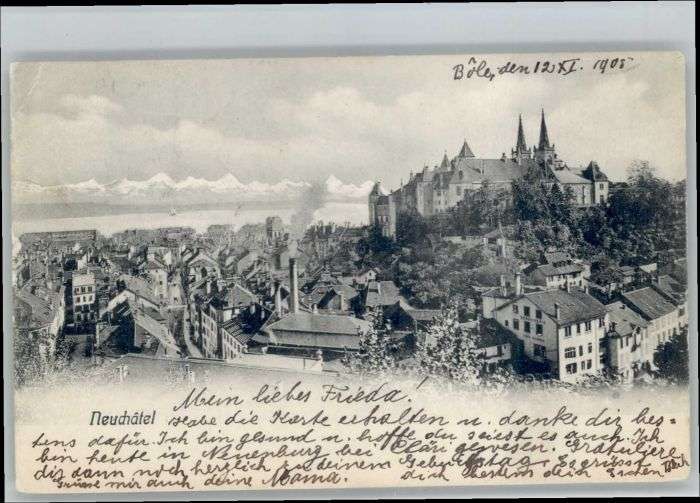 Bôle, den 12 XI. 1905
Neuchâtel
Mein liebes Frieda!
Habe die Karte erhalten u. danke dir bes-
tens dafür. Ich bin gesund u. hoffe du seiest es auch. Ich
bin heute in Neuenburg bei Clär gewesen. Gratuliere
dir dann noch herzlich zu deinem Geburtstag. Es grüsst
dich bestens dein
Grüsse mir auch deine Mama.